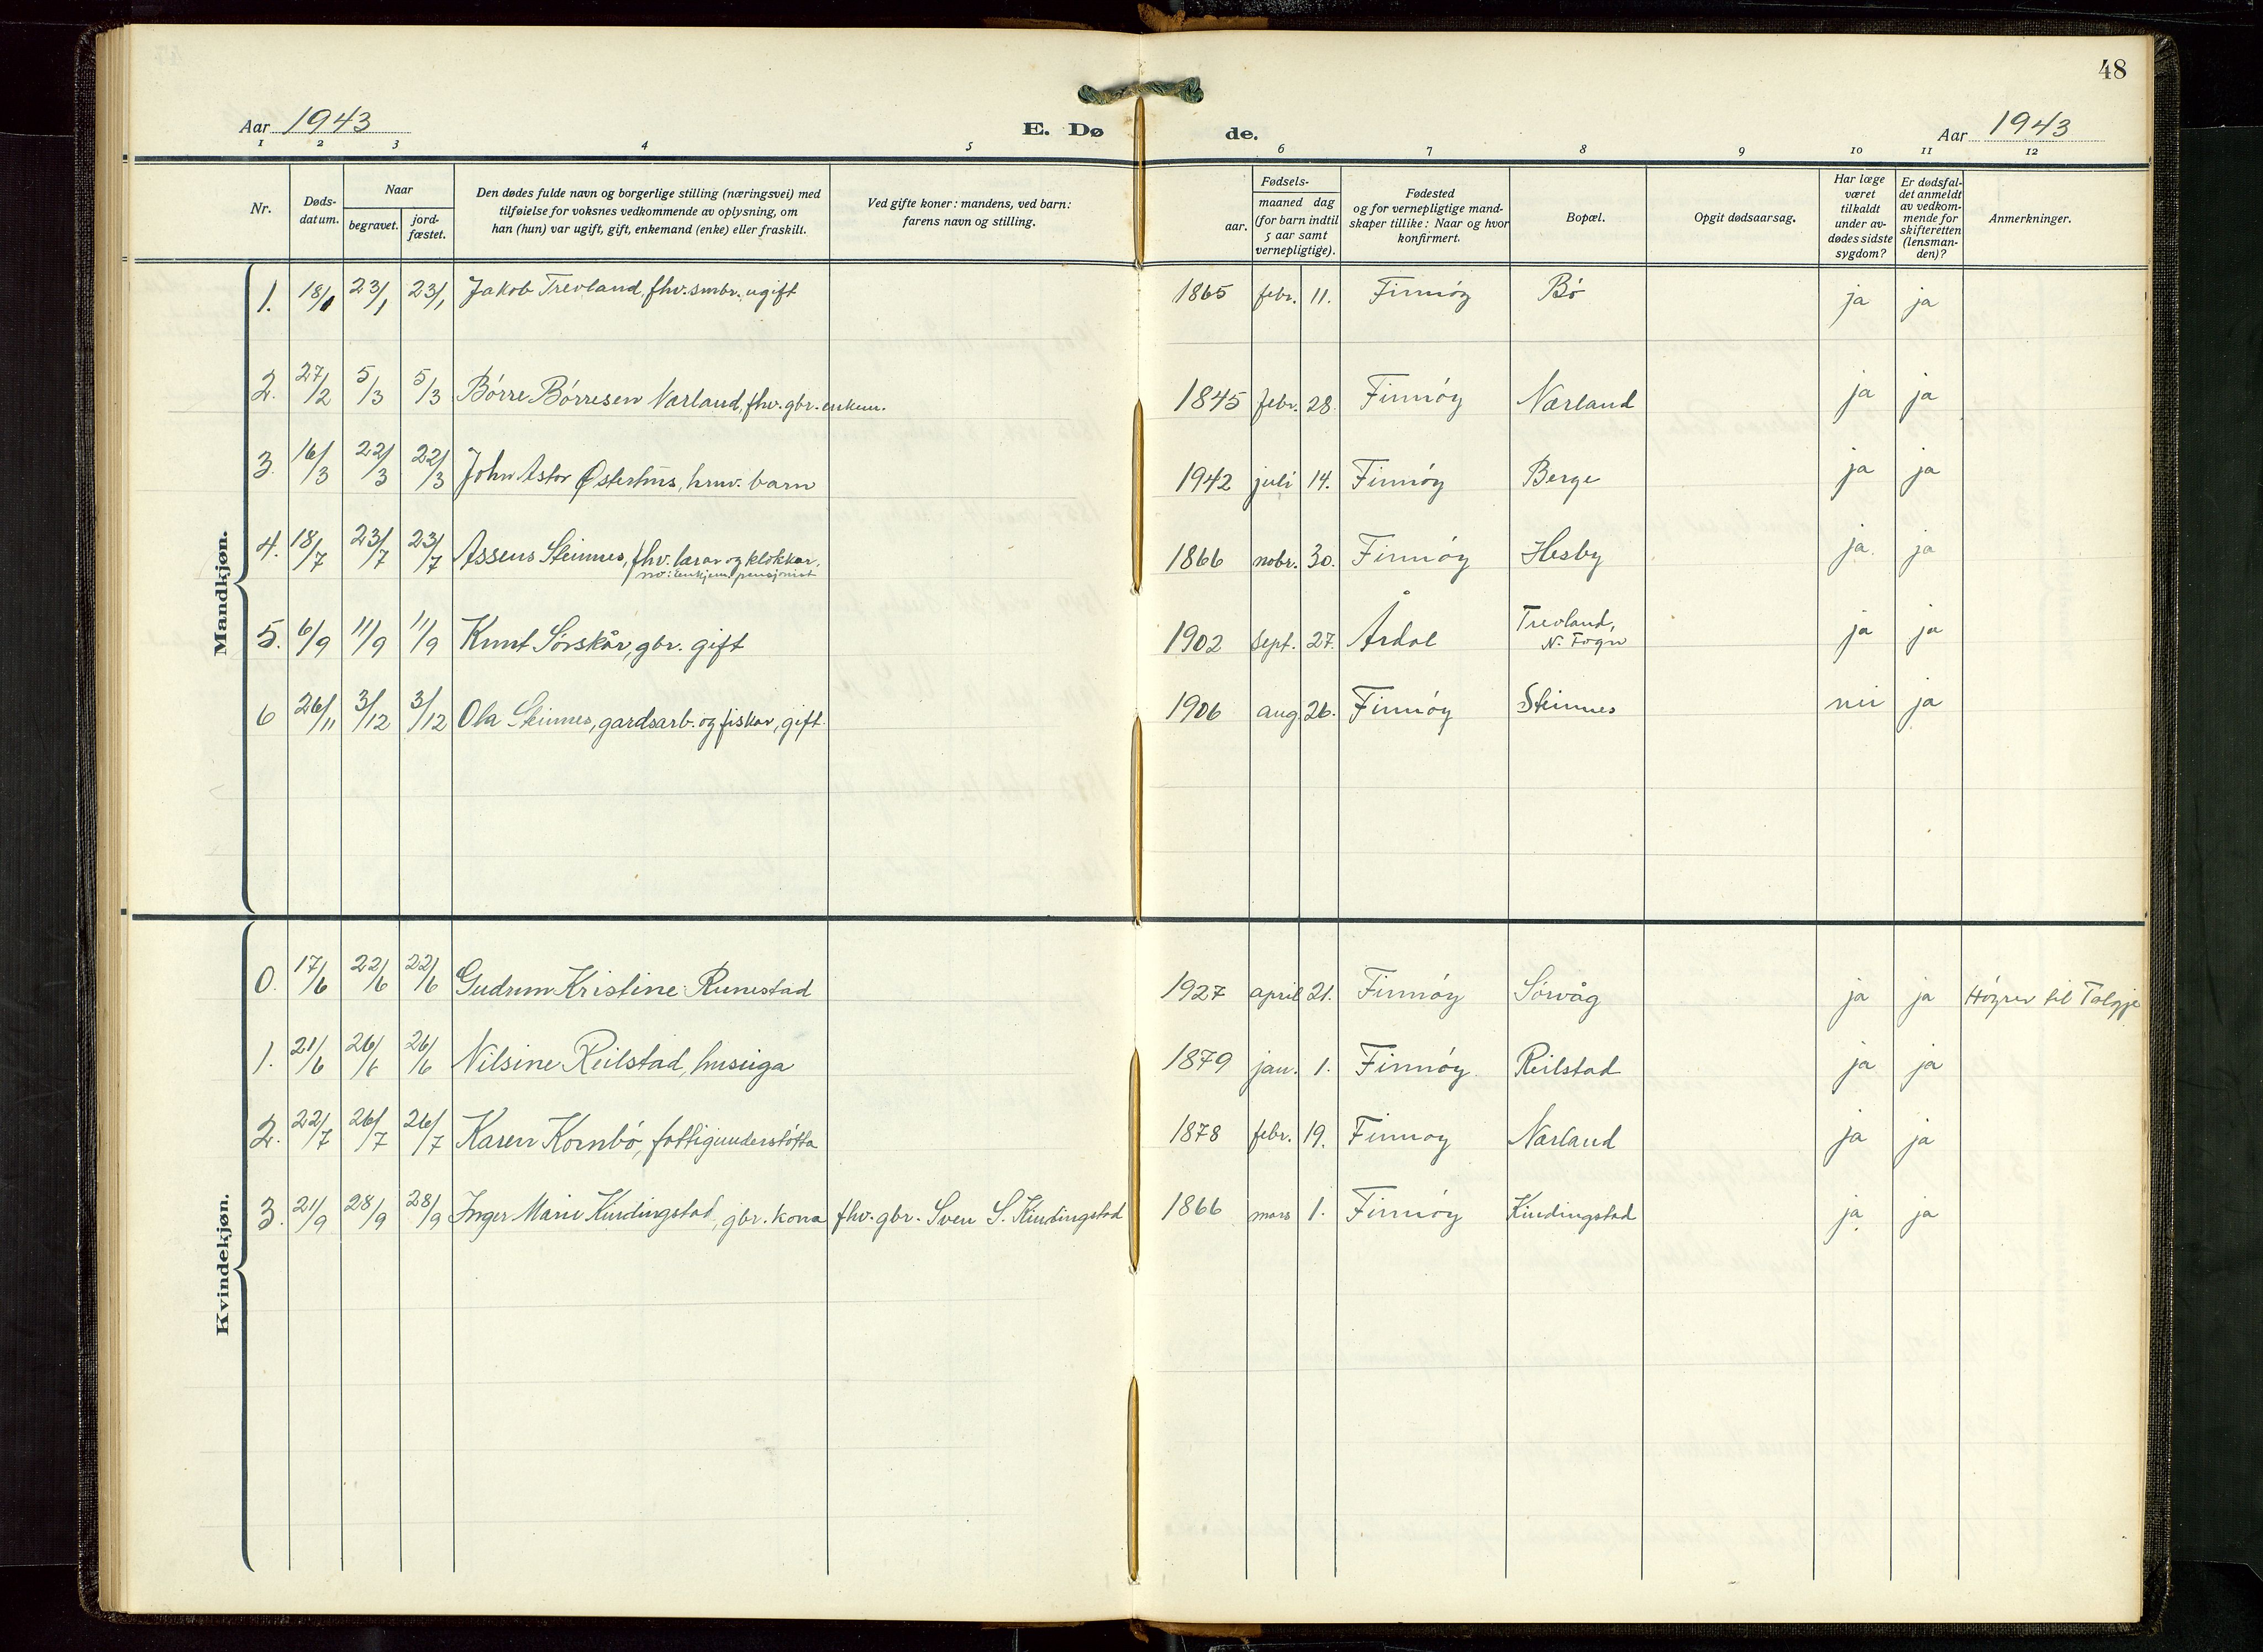 48
Aar 1943 E. Dø de. Aar 1943
1 2 3 4 5 6 7 8 9 10 11 12
Nr.
Døds-datum.
Naar
begravet.
jord-fæstet.
Den dødes fulde navn og borgerlige stilling (næringsvei) med
tilføielse for voksnes vedkommende av oplysning, om
han (hun) var ugift, gift, enkemand (enke) eller fraskilt.
Ved gifte koner: mandens, ved barn:
farens navn og stilling.
Fødsels-
aar.
maaned dag
(for barn indtil
5 aar samt
vernepligtige).
Fødested
og for vernepligtige mand-
skaper tillike: Naar og hvor
konfirmert.
Bopæl.
Opgit dødsaarsag.
Har læge
været
tilkaldt
under av-
dødes sidste
sygdom?
Er dødsfal-
det anmeldt
av vedkom-
mende for
skifteretten
(lensman-
den)?
Anmerkninger.
Mandkjøn.
1. 18/1 23/1 23/1 Jakob Trevland, fhv. smbr., ugift 1865 febr. 11. Finnöy Bö ja ja
2. 27/2 5/3 5/3 Börre Börresen Nærland, fhv. gbr. enkem. 1845 febr. 28. Finnöy Nærland ja ja
3. 16/3 22/3 22/3 John Astor Østerhus, hmv. barn 1942 juli 14. Finnöy Berge ja ja
4. 18/7 23/7 23/7 Assens Steinnes, fhv. lærar og klokkar, 1866 nobr. 30. Finnöy Hesby ja. ja
no: enkjem. pensjonist
5. 6/9 11/9 11/9 Knut Sørskår, gbr. gift 1902 sept. 27. Årdal Trevland, N. Fogn ja ja
6 26/11 3/12 3/12 Ola Steinnes, gardsarb. og fiskar, gift. 1906 aug. 26. Finnöy Steinnes nei ja
Kvindekjøn.
0. 17/6 22/6 22/6 Gudrun Kristine Runestad 1927 april 21. Finnöy Sörvåg ja ja Höyrer til Talgje
1. 21/6 26/6 26/6 Nilsine Reilstad, huseiga 1879 jan. 1. Finnöy. Reilstad ja ja
2. 22/7 26/7 26/7 Karen Kornbö, fattigunderstötta 1878 febr. 19. Finnoy Nærland ja ja
3. 21/9 28/9 28/9 Inger Marie Kindingstad, gbr. kona fhv. gbr. Sven S. Kindingstad 1866 mars 1. Finnöy Kindingstad ja ja